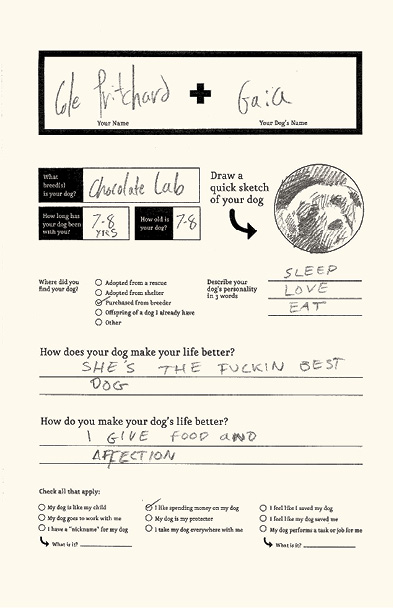 Cole Pritchard + Gaia
Your Name Your Dog's Name
What breed(s) is your dog? Chocolate Lab
How long has your dog been with you? 7-8 YRS
How old is your dog? 7-8
Draw a quick sketch of your dog
Where did you find your dog?
Adopted from a rescue
Adopted from shelter
Purchased from breeder
Offspring of a dog I already have
Other
Describe your dog's personality in 3 words
SLEEP
LOVE
EAT
How does your dog make your life better?
SHE'S THE FUCKIN BEST
DOG
How do you make your dog's life better?
I GIVE FOOD AND
AFFECTION
Check all that apply:
My dog is like my child
My dog goes to work with me
I have a "nickname" for my dog
What is it?
I like spending money on my dog
My dog is my protector
I take my dog everywhere with me
I feel like I saved my dog
I feel like my dog saved me
My dog performs a task or job for me
What is it?